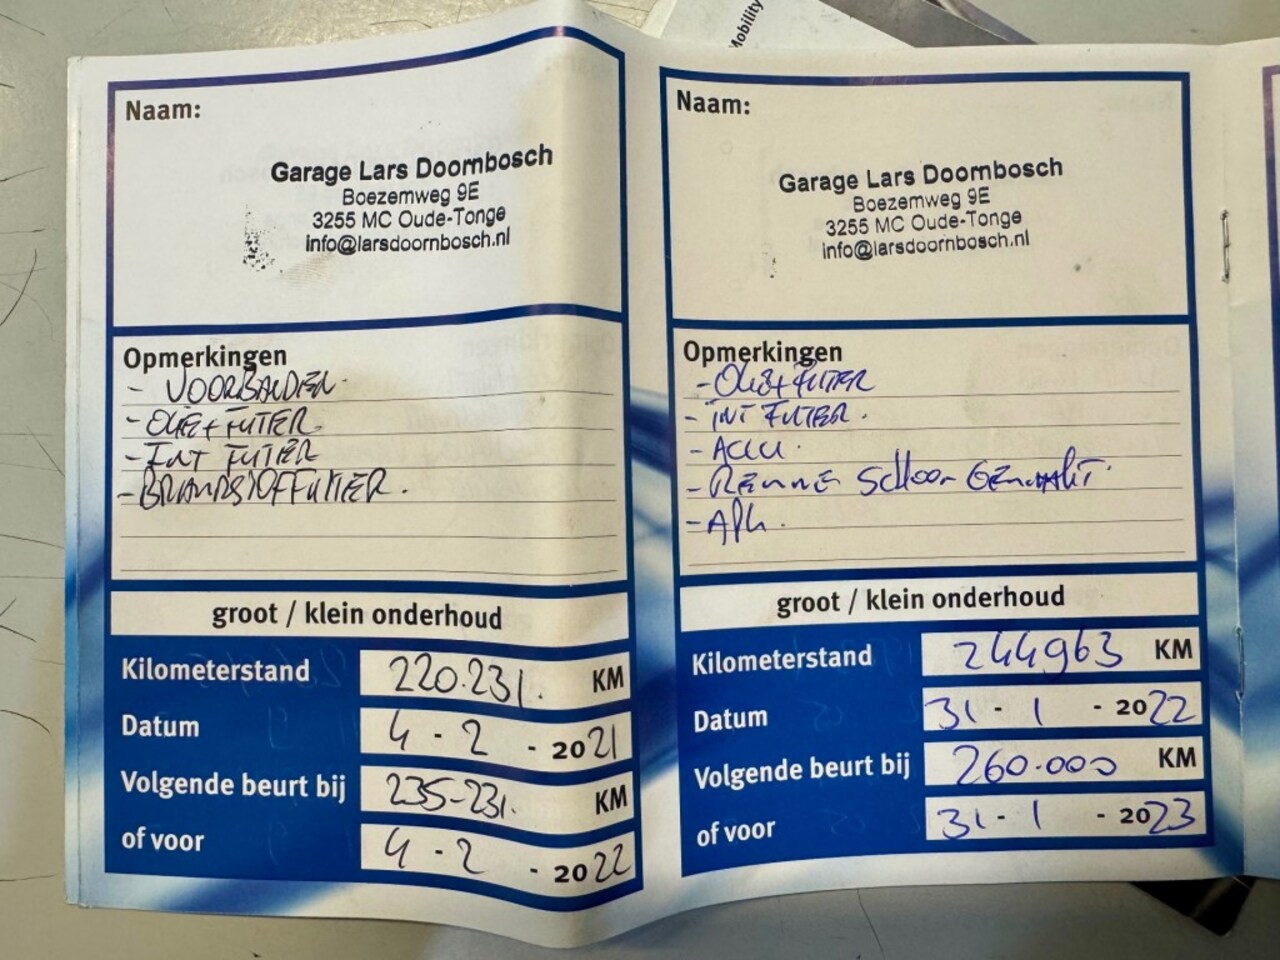 Mobility
Naam:
Garage Lars Doornbosch
Boezemweg 9E
3255 MC Oude-Tonge
info@larsdoornbosch.nl
Opmerkingen
- VOORBANDEN.
- OLIE + FILTER.
- INT FILTER
- BRANDSTOFFILTER.
groot / klein onderhoud
Kilometerstand 220.231. KM
Datum 4 - 2 - 2021
Volgende beurt bij 235-231. KM
of voor 4 - 2 - 2022
Naam:
Garage Lars Doornbosch
Boezemweg 9E
3255 MC Oude-Tonge
info@larsdoornbosch.nl
Opmerkingen
- OLIE + FILTER
- INT FILTER.
- ACCU.
- REMMEN SCHOON GEMAAKT.
- APK.
groot / klein onderhoud
Kilometerstand 244963 KM
Datum 31 - 1 - 2022
Volgende beurt bij 260.000 KM
of voor 31 - 1 - 2023